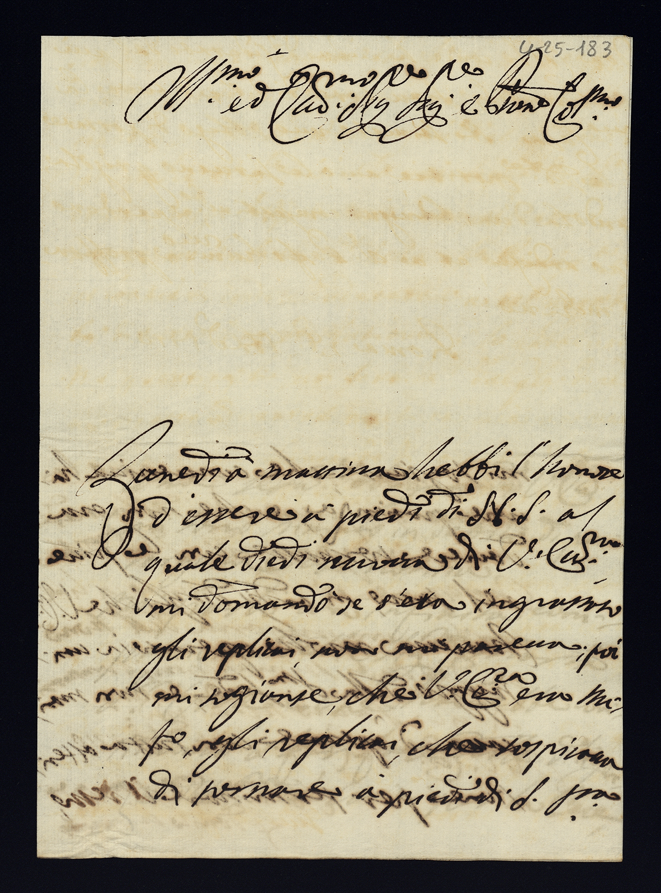 4-25-183
Ill.mo ed Ecc.mo Sig.re Sig.re e Pron Col.mo
Lunedi à mattina hebbi l'honore
d'essere à piedi di S. S. al
quale diedi nuova di V. Ecc.za
mi domandò se s'era ingrassato
gli replicai, non mi pareva. poi
mi sogionse, che V. Ecc.za era
gli replicai, che sospirava
di tornare à piedi di S. S.tà